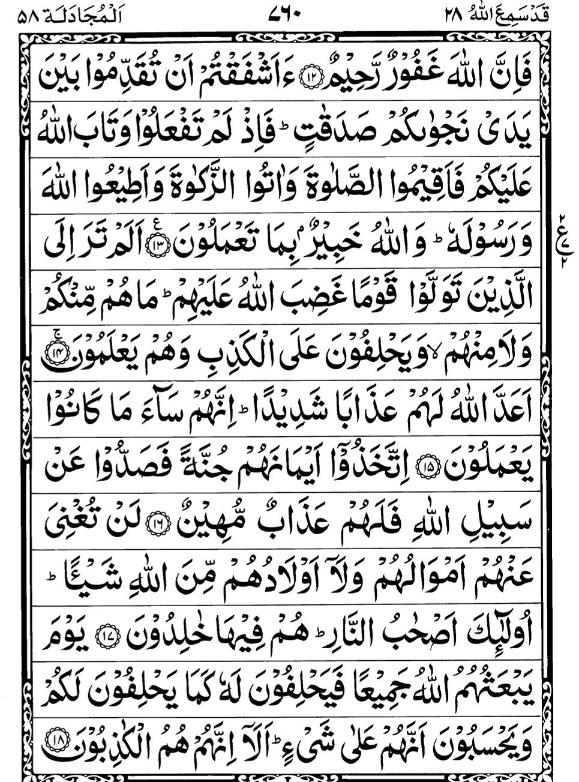 قَدْسَمِعَ اللّٰهُ ٢٨ ٧٦٠ اَلْمُجَادَلَة ٥٨
فَاِنَّ اللّٰهَ غَفُوْرٌ رَّحِيْمٌ ۝١٢ ءَاَشْفَقْتُمْ اَنْ تُقَدِّمُوْا بَيْنَ
يَدَىْ نَجْوٰىكُمْ صَدَقٰتٍ ؕ فَاِذْ لَمْ تَفْعَلُوْا وَتَابَ اللّٰهُ
عَلَيْكُمْ فَاَقِيْمُوا الصَّلٰوةَ وَاٰتُوا الزَّكٰوةَ وَاَطِيْعُوا اللّٰهَ
وَرَسُوْلَهٗ ؕ وَاللّٰهُ خَبِيْرٌۢ بِمَا تَعْمَلُوْنَ ۝١٣ ع اَلَمْ تَرَ اِلَى
٢ ع ٢
الَّذِيْنَ تَوَلَّوْا قَوْمًا غَضِبَ اللّٰهُ عَلَيْهِمْ ؕ مَا هُمْ مِّنْكُمْ
وَلَا مِنْهُمْ ۙ وَيَحْلِفُوْنَ عَلَى الْكَذِبِ وَهُمْ يَعْلَمُوْنَ ۝١٤ ۚ
اَعَدَّ اللّٰهُ لَهُمْ عَذَابًا شَدِيْدًا ؕ اِنَّهُمْ سَآءَ مَا كَانُوْا
يَعْمَلُوْنَ ۝١٥ اِتَّخَذُوْۤا اَيْمَانَهُمْ جُنَّةً فَصَدُّوْا عَنْ
سَبِيْلِ اللّٰهِ فَلَهُمْ عَذَابٌ مُّهِيْنٌ ۝١٦ لَنْ تُغْنِىَ
عَنْهُمْ اَمْوَالُهُمْ وَلَاۤ اَوْلَادُهُمْ مِّنَ اللّٰهِ شَيْـًٔا ؕ
اُولٰٓئِكَ اَصْحٰبُ النَّارِ ؕ هُمْ فِيْهَا خٰلِدُوْنَ ۝١٧ يَوْمَ
يَبْعَثُهُمُ اللّٰهُ جَمِيْعًا فَيَحْلِفُوْنَ لَهٗ كَمَا يَحْلِفُوْنَ لَكُمْ
وَيَحْسَبُوْنَ اَنَّهُمْ عَلٰى شَىْءٍ ؕ اَلَاۤ اِنَّهُمْ هُمُ الْكٰذِبُوْنَ ۝١٨